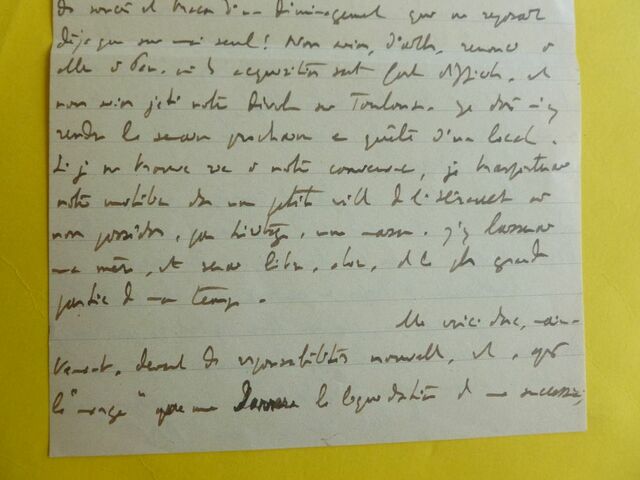 de soucis et tracas d'un déménagement que ne reposait
déjà que sur moi seul! Nous avions, d'ailleurs, renoncé à
aller à où les acquisitions sont fort difficiles, et
nous avions jeté notre dévolu sur Toulouse. Je dois m'y
rendre la semaine prochaine en quête d'un local.
Si je ne trouve rien à notre convenance, je transporterai
notre mobilier dans une petite ville de l'Hérault où
nous possédons, par héritage, une maison. J'y laisserai
ma mère, et serai libre, alors, de la plus grande
partie de mon temps.
Me voici donc, main-
tenant, devant des responsabilités nouvelles, et, après
le "orage" que me la liquidation de ma succession,